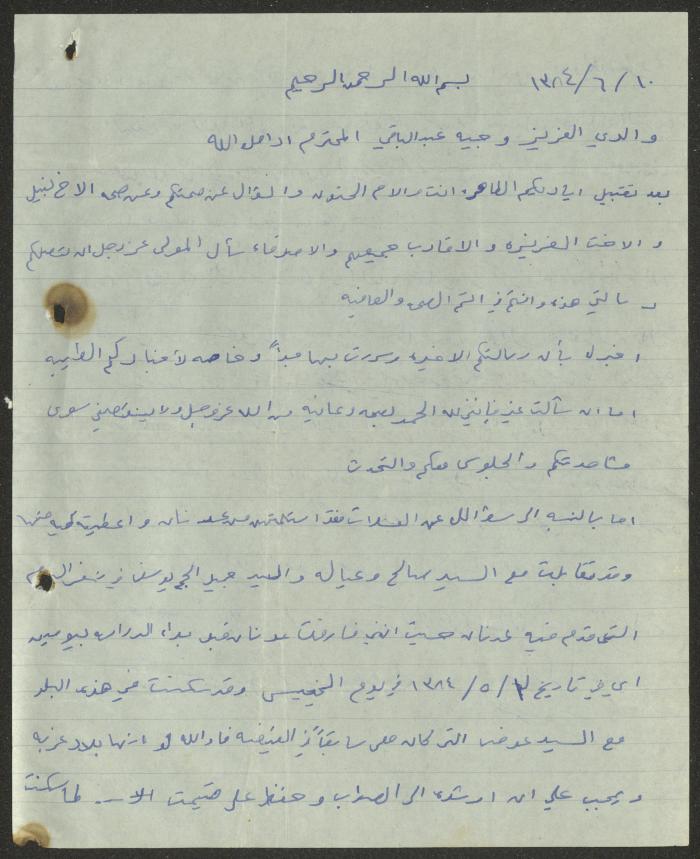 ١٠/٦/١٣٨٤ بسم الله الرحمن الرحيم
والدي العزيز وجيه عبدالباقي المحترم ادامك الله
بعد تقبيل اياديكم الطاهرة انت والام الحنون والسؤال عن صحتكم وعن صحة الاخ نبيل
والاخت العزيزة والاقارب جميعهم والاصدقاء سأل المولى عز وجل ان تصلكم
رسالتي هذه وانتم في اتم الصحة والعافيه
اخبرك بأن رسالتكم الاخيرة وسررت بها جداً وخاصه لأخباركم الطيبه
اما ان سألت عني فإنني لله الحمد بصحه وعافيه من الله عز وجل ولا ينقصني سوى
مشاهدتكم والجلوس معكم والتحدث
اما بالنسبه الى سؤالك عن فقد استلمتهن من عدنان واعطيته كميه منها
وقد تقابلت مع السيد صالح وعياله والسيد في
التي قدم فيه عدنان حيث انني فارقت عدنان قبل بدأ الدراسه بيومين
اي في تاريخ /٥/١٣٨٤ في يوم الخميس وقد سكنت في هذه البلد
مع السيد عوض الذي كان سابقاً في فوالله لو انها بلاد غربه
ويجب علي ان ارشده الى الصواب وحفظ على سكنت